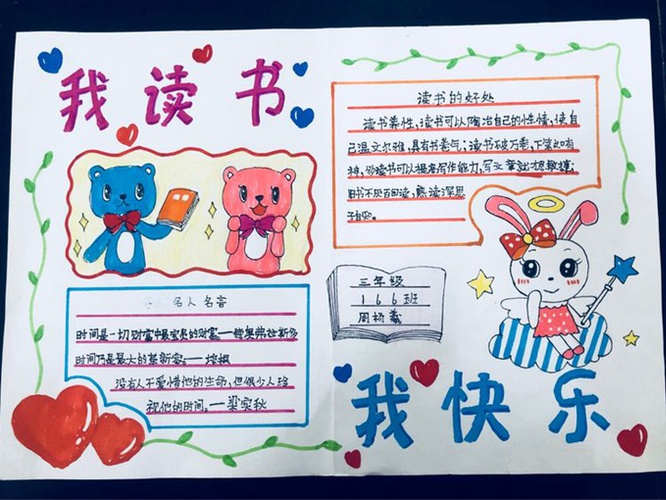 我读书
读书的好处
读书养性,读书可以陶冶自己的性情,使自
己温文尔雅,具有书卷气;读书破万卷,下笔如有
神,多读书可以提高写作能力,写文章就才思敏捷;
旧书不厌百回读,熟读深思
子自知。
三年级
166班
周扬羲
名人名言
时间是一切财富中最宝贵的财富。——德奥弗拉斯多
时间乃是最大的革新家。——培根
没有人不爱惜他的生命,但很少人珍
视他的时间。——梁实秋
我快乐